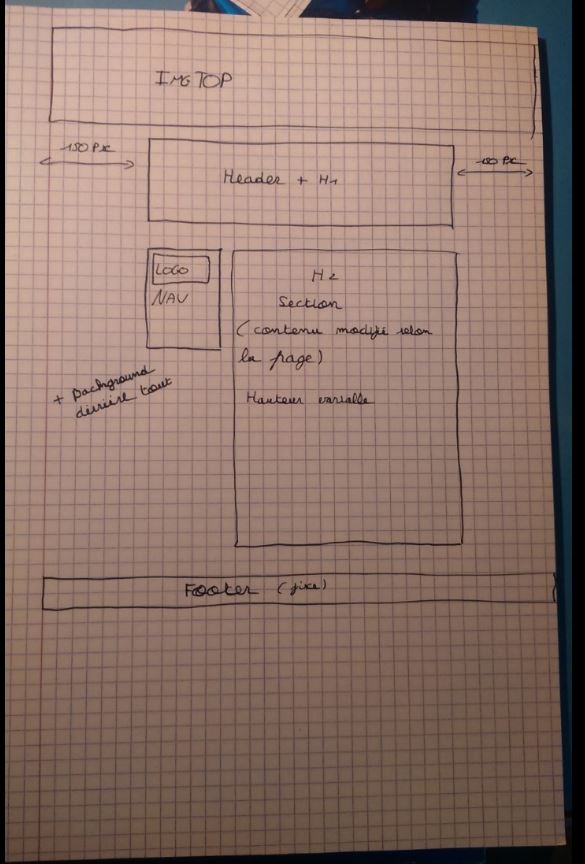 IMG TOP
150 PX
Header + H1
LOGO
NAV
H2
Section
(contenu modifié selon
la page)
Hauteur variable
+ Background
derrière tout
Footer (fixe)